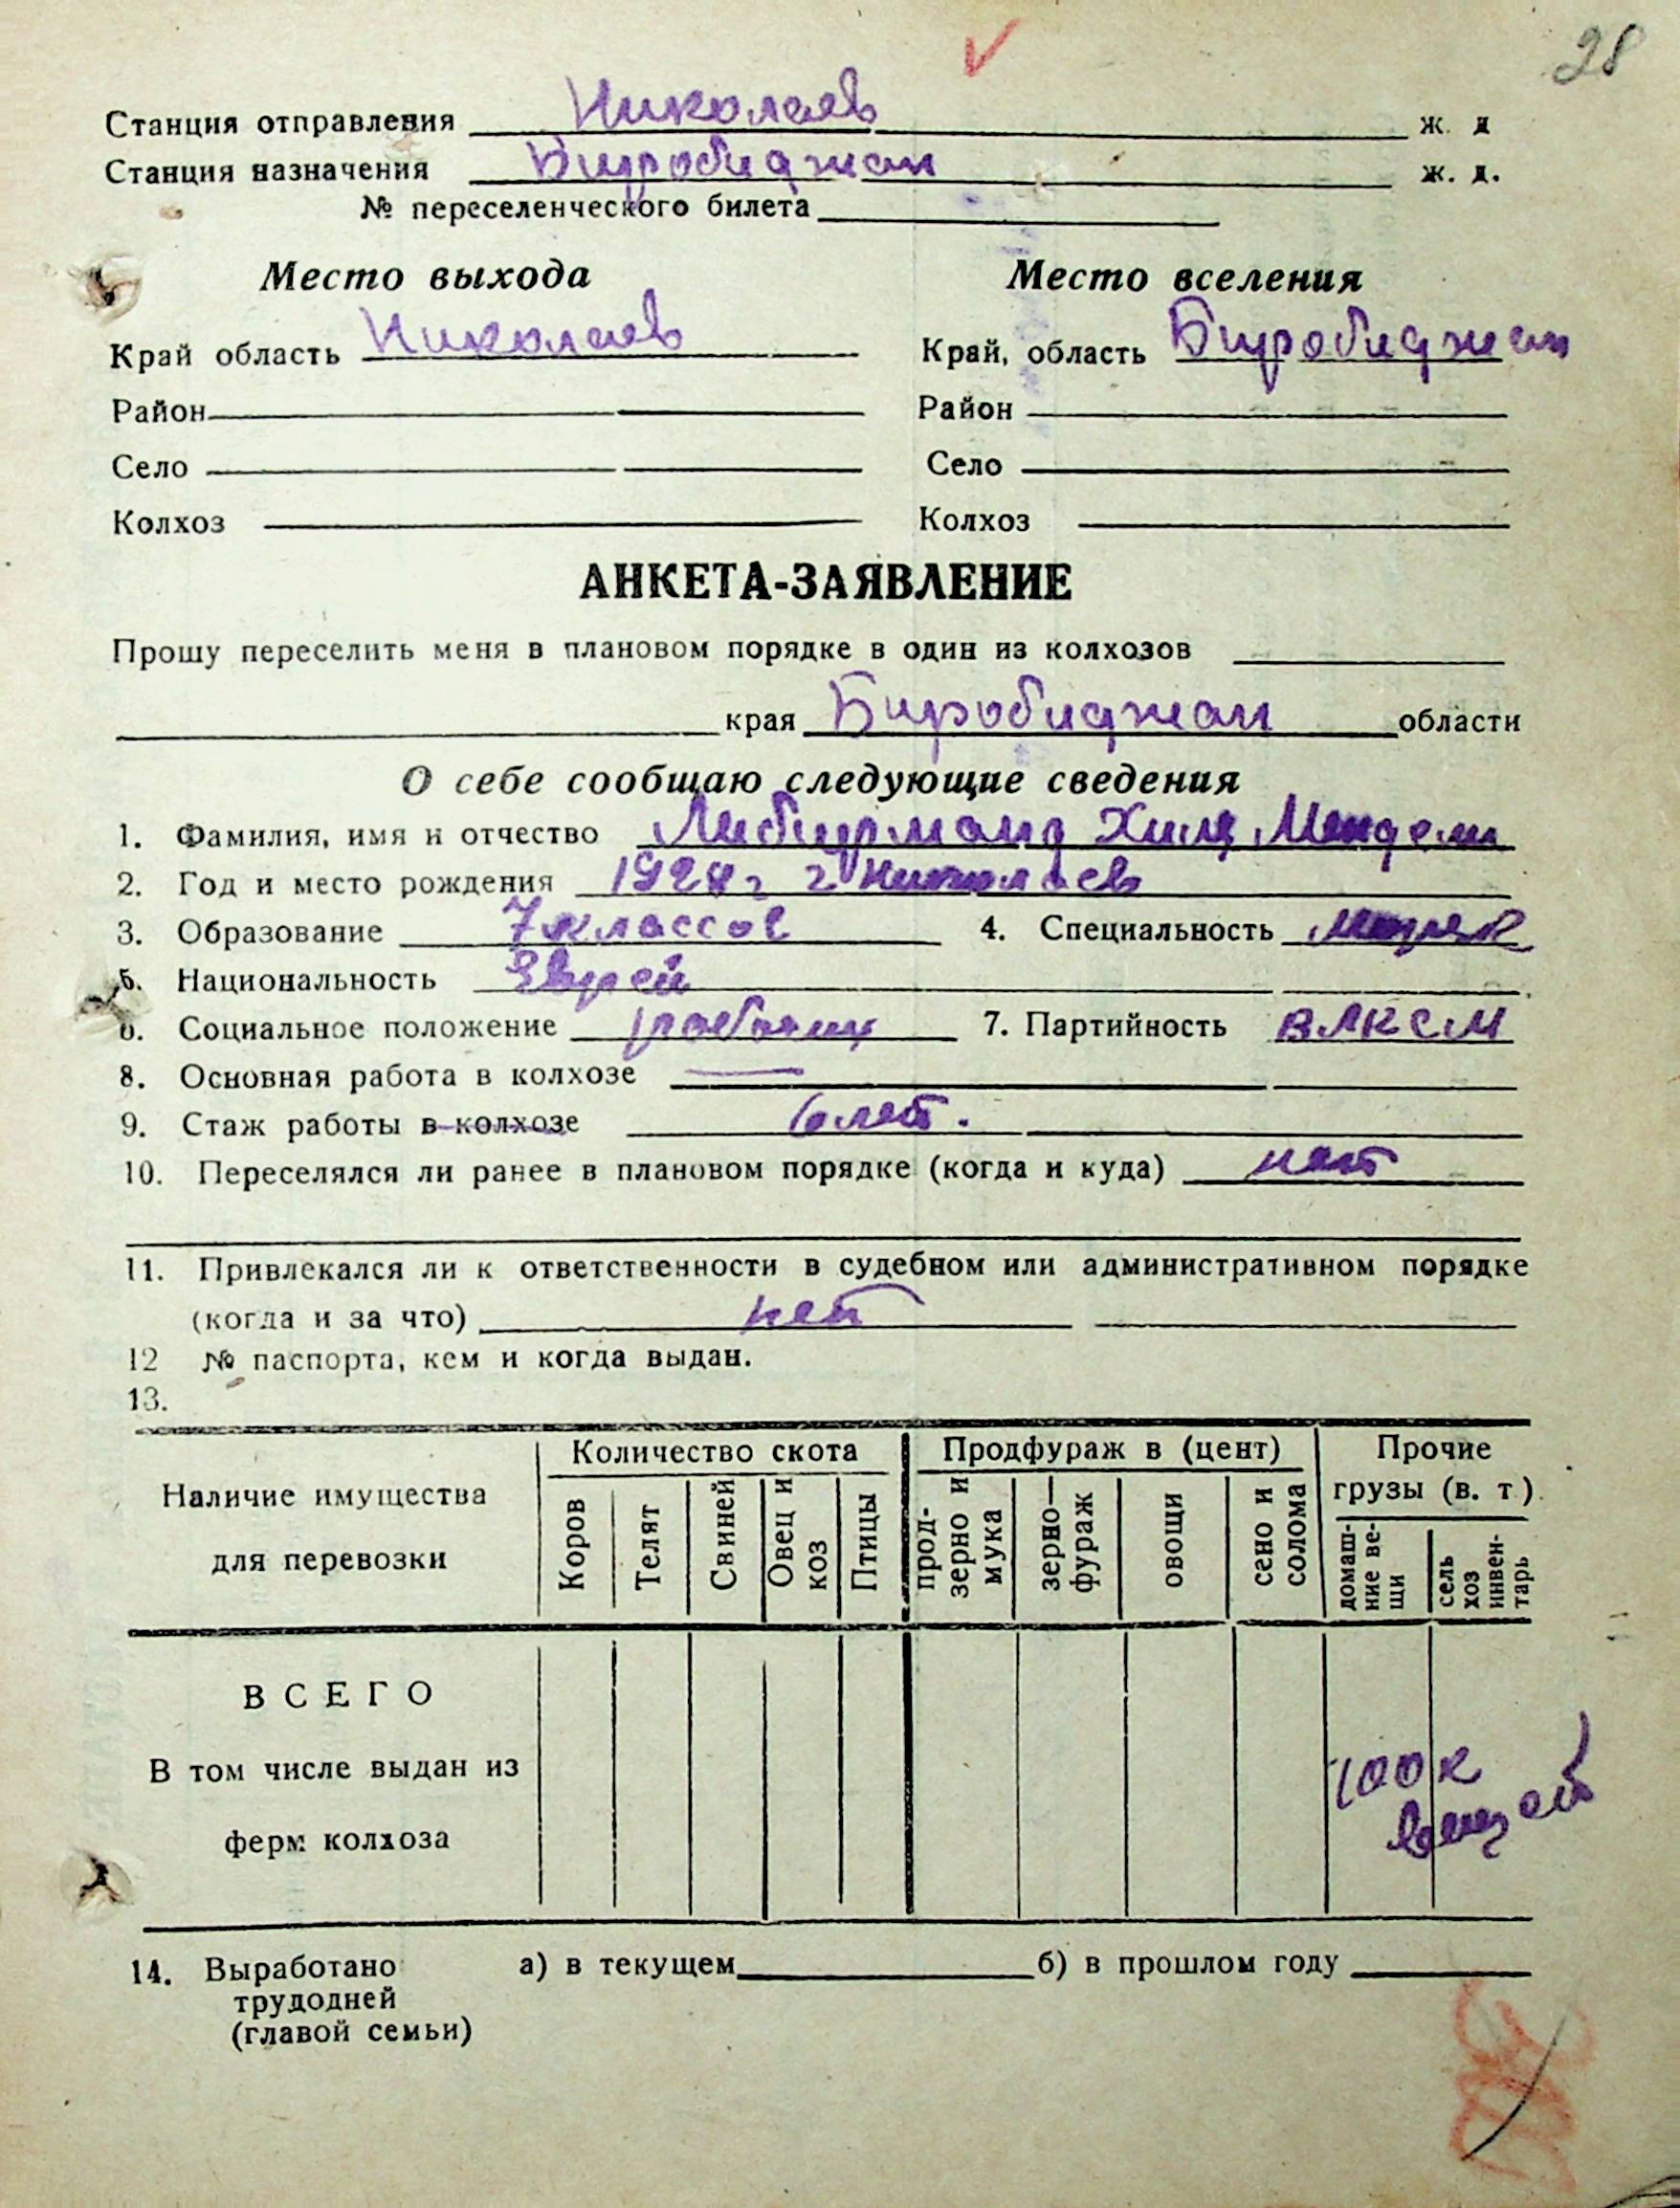 28
Станция отправления Николаев ж. д
Станция назначения Биробиджан ж. д.
№ переселенческого билета
Место выхода Место вселения
Край область Николаев Край, область Биробиджан
Район Район
Село Село
Колхоз Колхоз
АНКЕТА-ЗАЯВЛЕНИЕ
Прошу переселить меня в плановом порядке в один из колхозов
края Биробиджан области
О себе сообщаю следующие сведения
1. Фамилия, имя и отчество
2. Год и место рождения г Николаев
3. Образование 7 классов 4. Специальность
5. Национальность Еврей
6. Социальное положение рабочий 7. Партийность ВЛКСМ
8. Основная работа в колхозе —
9. Стаж работы в колхозе 6 лет.
10. Переселялся ли ранее в плановом порядке (когда и куда) нет
11. Привлекался ли к ответственности в судебном или административном порядке
(когда и за что) нет
12 № паспорта, кем и когда выдан.
13.
Наличие имущества для перевозки
Количество скота Продфураж в (цент) Прочие грузы (в. т.)
Коров Телят Свиней Овец и коз Птицы прод-зерно и мука зерно—фураж овощи сено и солома домаш-ние ве-щи сель хоз инвен-тарь
ВСЕГО
В том числе выдан из 100 к
ферм колхоза вещей
14. Выработано а) в текущем б) в прошлом году
трудодней
(главой семьи)